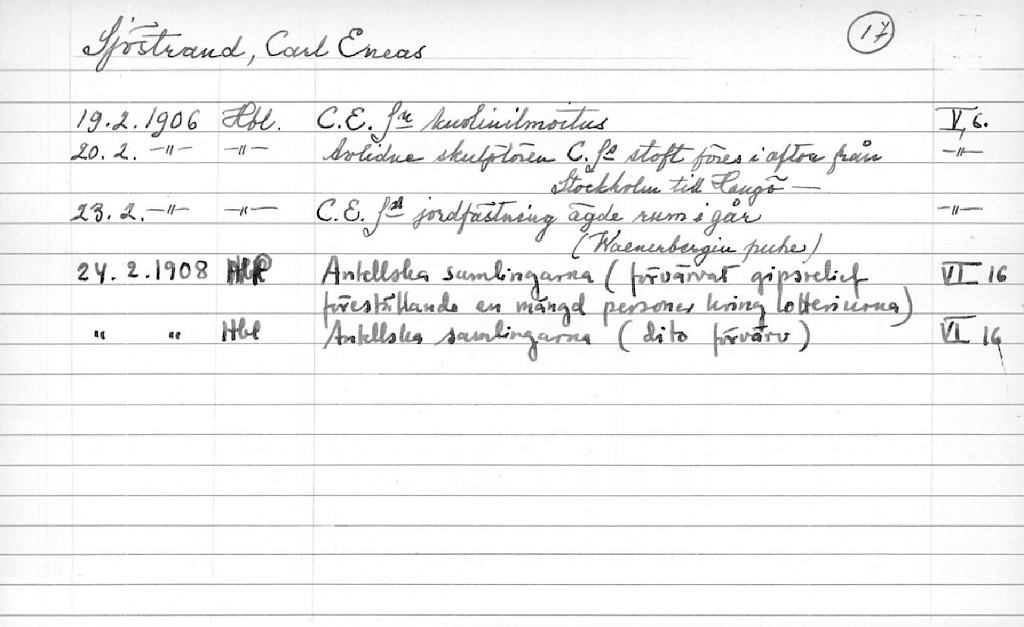 Sjöstrand, Carl Eneas
17
19.2.1906 Hbl. C.E. S:n kuolinilmoitus V, 6.
20.2. -"- -"- Avlidne skulptören C. S:s stoft föres i afton från -"-
Stockholm till Hangö —
23.2. -"- -"- C.E. S:s jordfästning ägde rum i går -"-
(Waenerbergin puhe)
24.2.1908 Antellska samlingarna (förvärvat gipsrelief VI 16
föreställande en mängd personer kring lotteriurna)
" " Hbl Antellska samlingarna (dito förvärv) VI 16